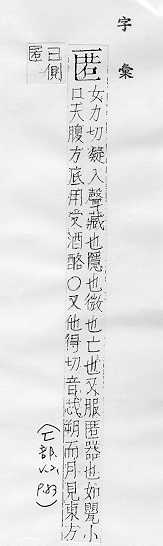 字彙
匿
女力切凝入聲藏也隱也微也亡也又服匿器也如甖小
口大腹方底用受酒酪○又他得切音忒朔而月見東方
曰側
匿
(匸部
V.2,
P.83)